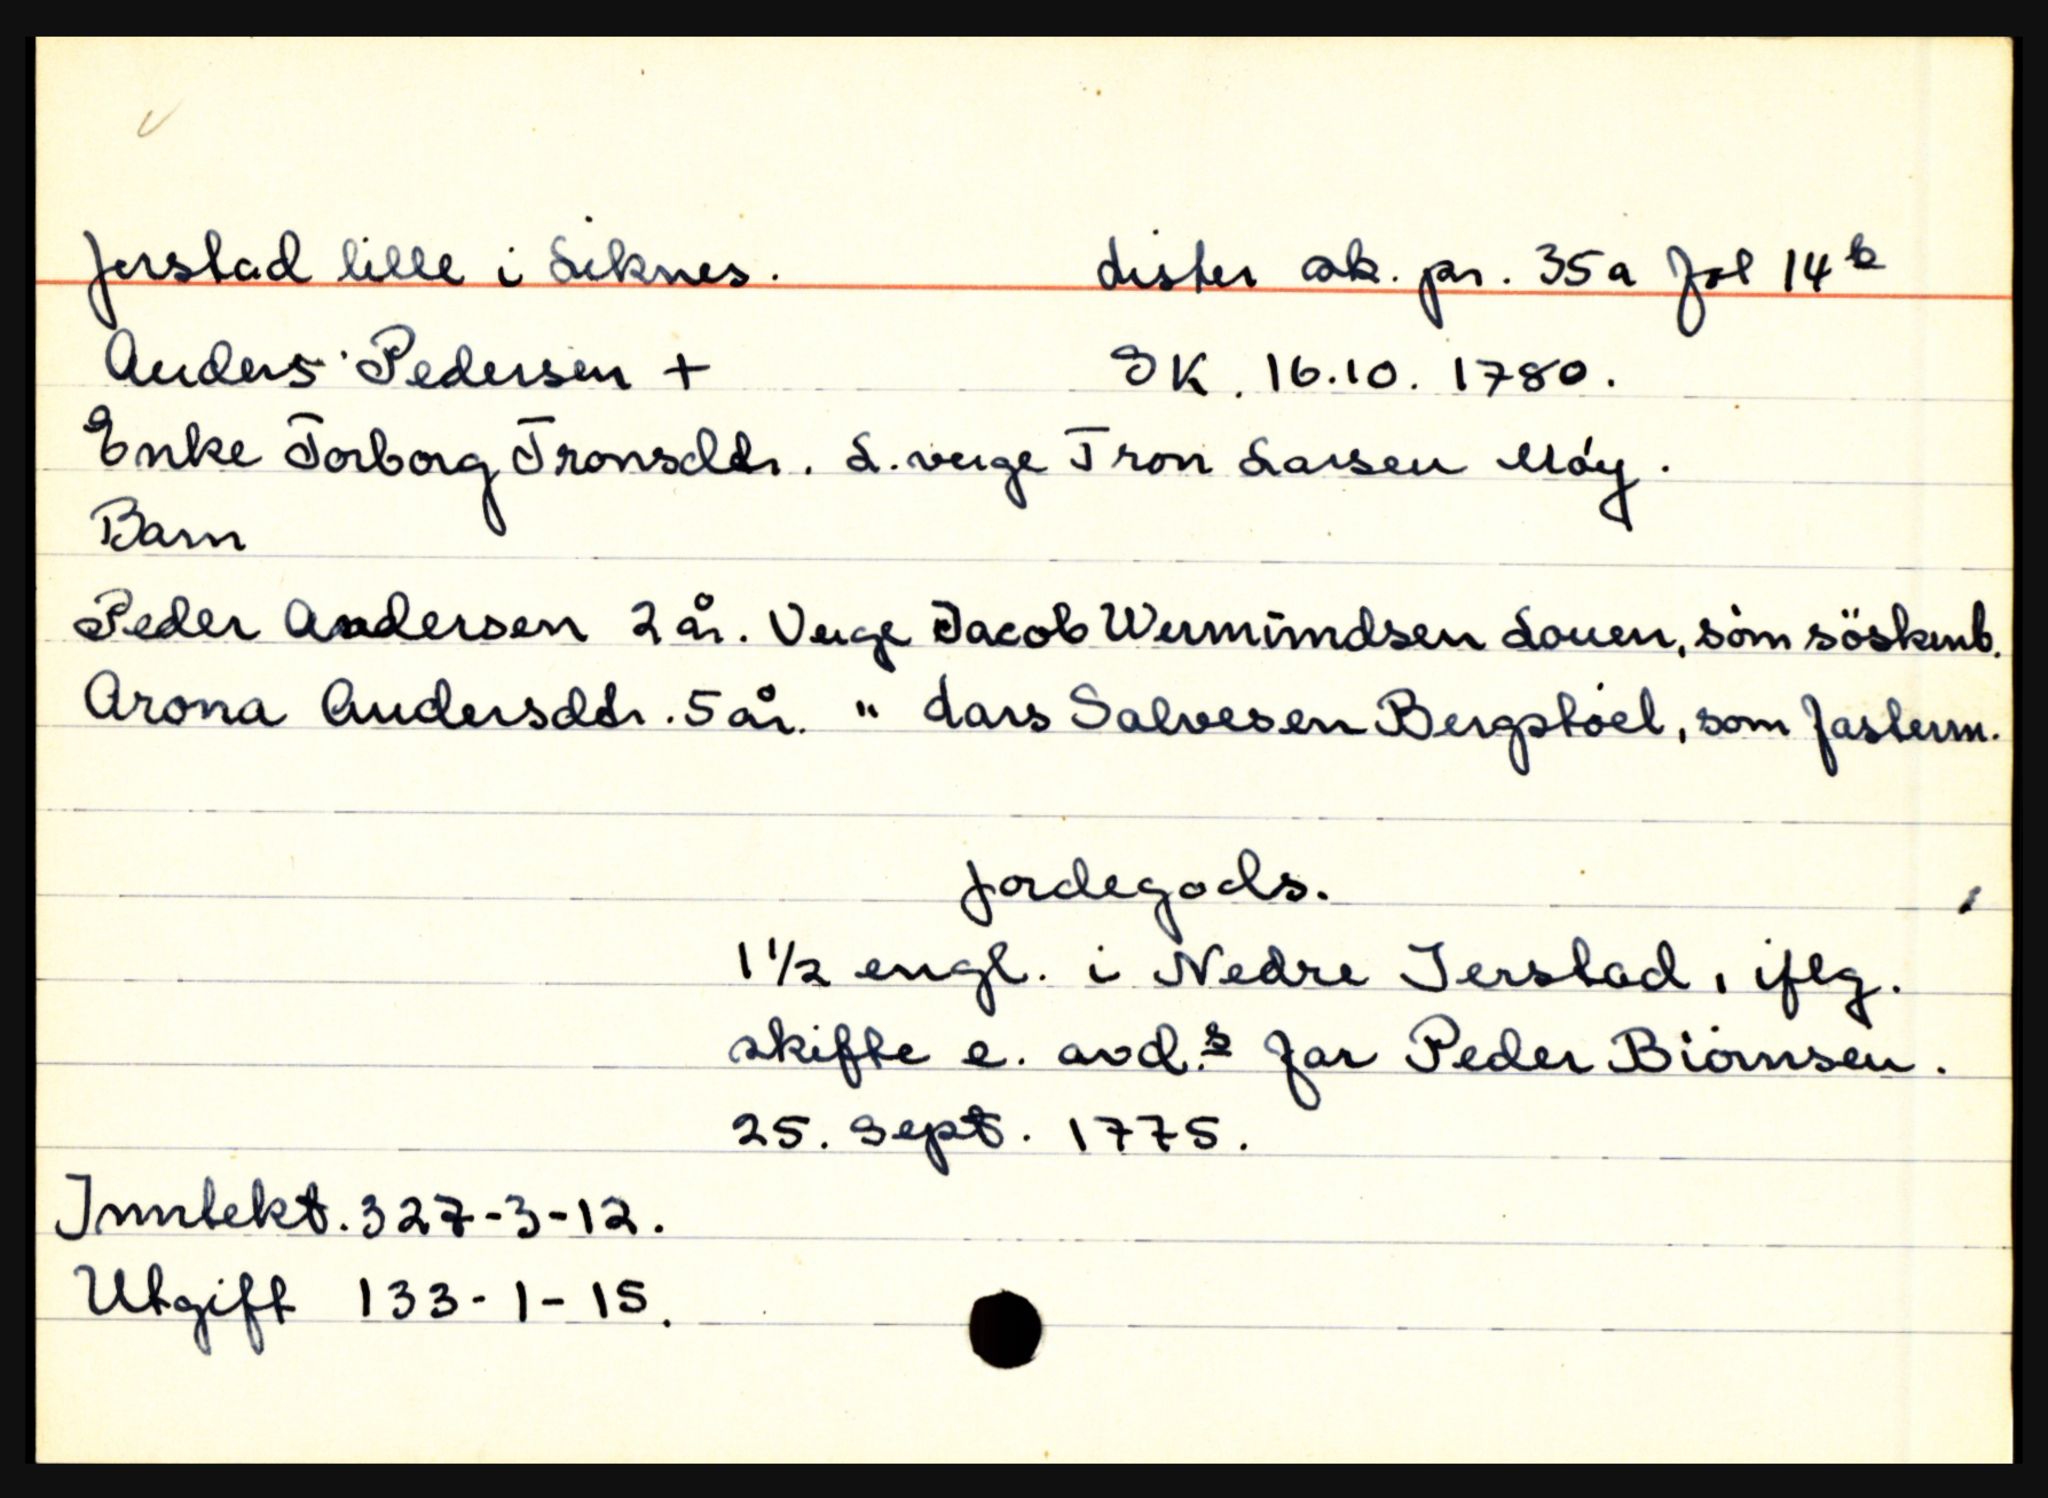 Jerstad lille i Liknes. Lister sk. pr. 35a fol 14b
Anders Pedersen + SK. 16.10. 1780.
Enke Torborg Tronsdtr. L. verge Tron Larsen Móy.
Barn
Peder Andersen 2 år. Verge Jacob Wermundsen Louen, som söskenb.
Arona Andersdtr. 5 år. " Lars Salvesen Bergstóel, som fasterm.
Jordegods.
1 1/2 engl. i Nedre Jerstad, iflg.
skifte e. avd.s far Peder Biörnsen.
25. Sept. 1775.
Inntekt. 327-3-12.
Utgift 133-1-15.